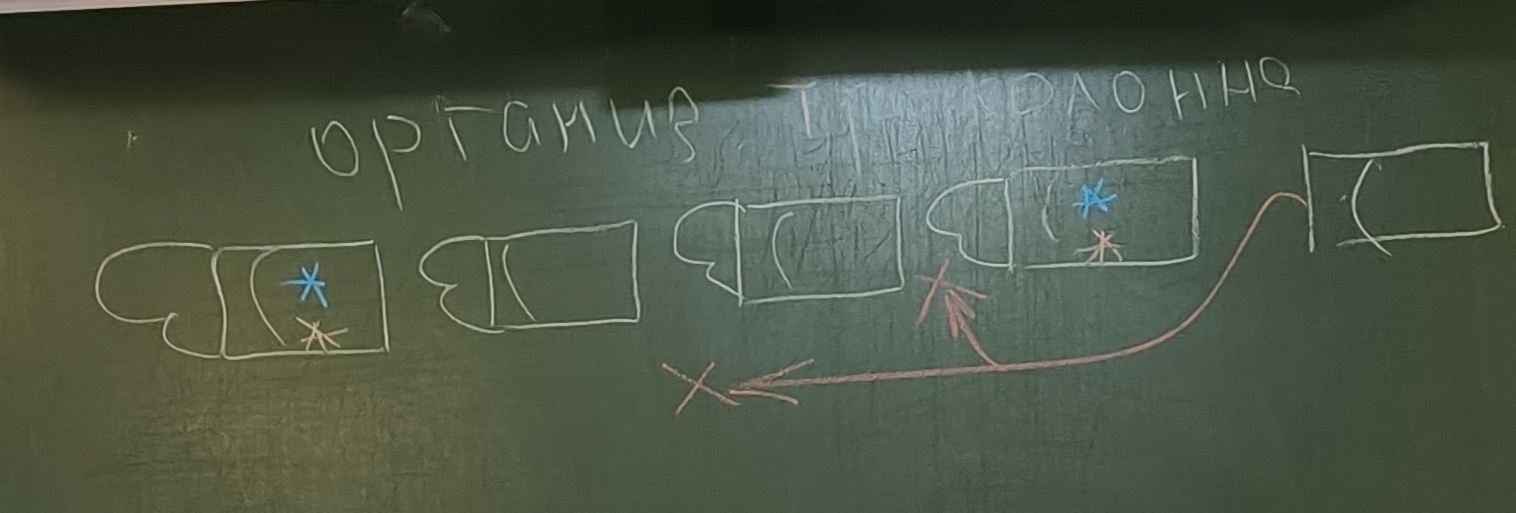 организ. тр колонна